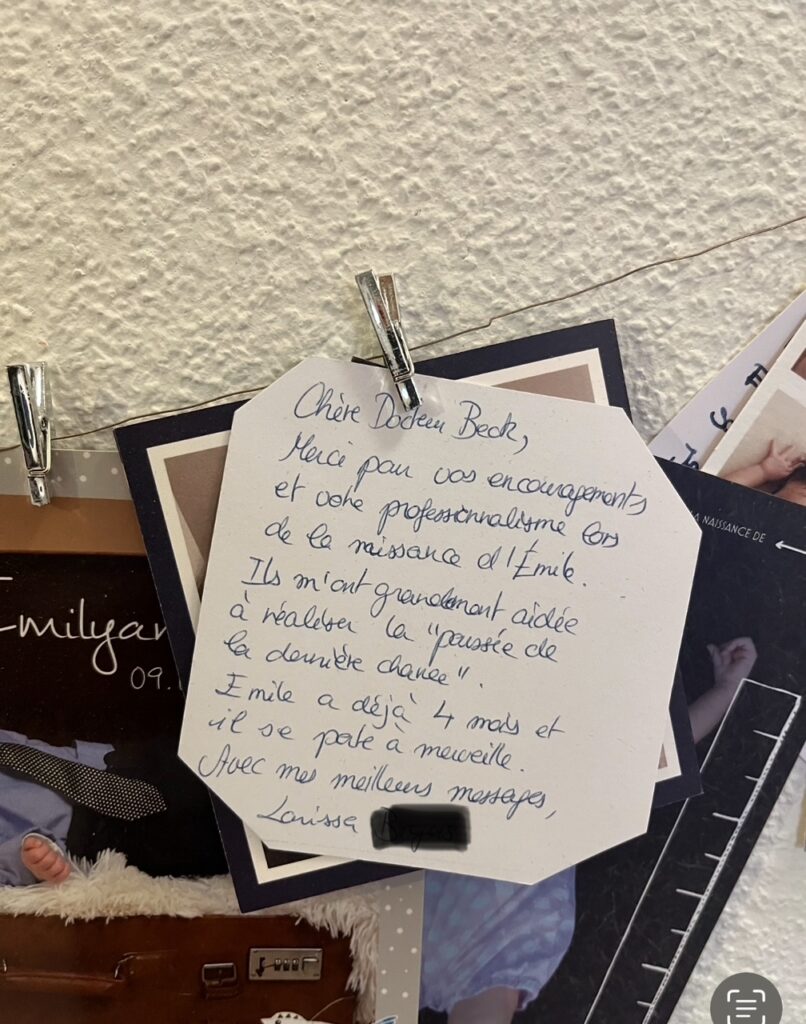 Chère Docteur Beck,
Merci pour vos encouragements
et votre professionnalisme lors
de la naissance d'Émile.
Ils m'ont grandement aidée
à réaliser la "poussée de
la dernière chance".
Emile a déjà 4 mois et
il se porte à merveille.
Avec mes meilleurs messages,
Larissa
Emilyan
09.
LA NAISSANCE DE